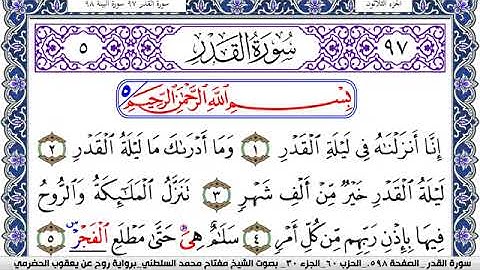 الجزء الثلاثون سورة القدر ٩٧ سورة البينة ٩٨
٩٧ سُورَةُ القَدْرِ ٥
بِسْمِ اللَّهِ الرَّحْمَٰنِ الرَّحِيمِ ٥
إِنَّا أَنزَلْنَٰهُ فِى لَيْلَةِ الْقَدْرِ ١ وَمَا أَدْرَىٰكَ مَا لَيْلَةُ الْقَدْرِ ٢
لَيْلَةُ الْقَدْرِ خَيْرٌ مِّنْ أَلْفِ شَهْرٍ ٣ تَنَزَّلُ الْمَلَٰٓئِكَةُ وَالرُّوحُ
فِيهَا بِإِذْنِ رَبِّهِم مِّن كُلِّ أَمْرٍ ٤ سَلَٰمٌ هِىَ حَتَّىٰ مَطْلَعِ الْفَجْرِ ٥
سورة القدر_الصفحة ٥٩٨_الحزب ٦٠_الجزء ٣٠_ بصوت الشيخ مفتاح محمد السلطني_برواية روح عن يعقوب الحضرمي